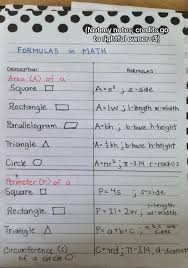 (Not my notes, credits go
to rightful owner <3)
FORMULAS in MATH
DESCRIPTION FORMULAS
Area (A) of a:
Square A=s², s-side
Rectangle A=lw, l-length w-width
Parallelogram A=bh, b-base h-height
Triangle A=½bh, b-base h-height
Circle A=πr², π-3.14 r-radius
Perimeter (P) of a
Square P=4s, s-side
Rectangle P=2l+2w, l-length w-width
Triangle P=a+b+c, a,b,c are sides
Circumference (C)
of a circle C=πd, π-3.14, d-diameter